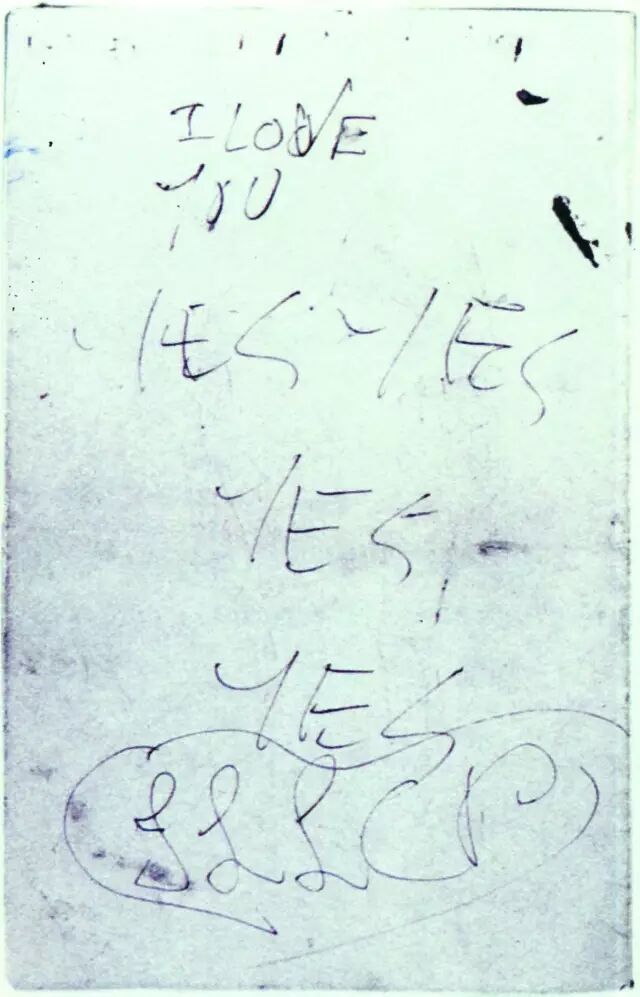 I LOVE
YOU
YES YES
YES,
YES